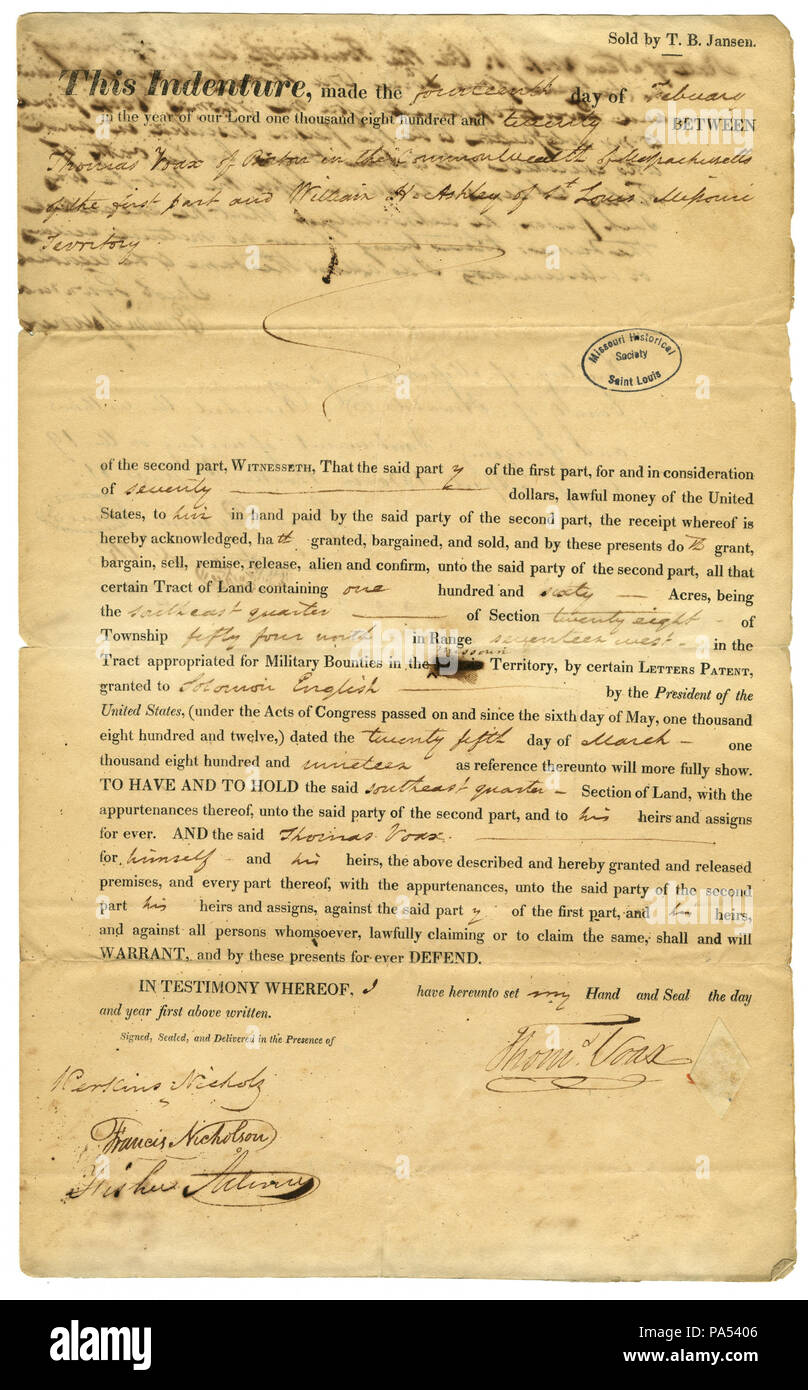 Sold by T. B. Jansen.
This Indenture, made the fourteenth day of February
in the year of our Lord one thousand eight hundred and twenty BETWEEN
Thomas Voax of Boston in the Commonwealth of Massachusetts
of the first part and William H. Ashley of St Louis Missouri
Territory
Missouri Historical
Society
Saint Louis
of the second part, WITNESSETH, That the said part y of the first part, for and in consideration
of seventy dollars, lawful money of the United
States, to him in hand paid by the said party of the second part, the receipt whereof is
hereby acknowledged, ha th granted, bargained, and sold, and by these presents do th grant,
bargain, sell, remise, release, alien and confirm, unto the said party of the second part, all that
certain Tract of Land containing one hundred and sixty Acres, being
the southeast quarter of Section twenty eight of
Township fifty four north in Range seventeen west in the
Tract appropriated for Military Bounties in the Missouri Territory, by certain LETTERS PATENT,
granted to Solomon English by the President of the
United States, (under the Acts of Congress passed on and since the sixth day of May, one thousand
eight hundred and twelve,) dated the twenty fifth day of March one
thousand eight hundred and nineteen as reference thereunto will more fully show.
TO HAVE AND TO HOLD the said southeast quarter Section of Land, with the
appurtenances thereof, unto the said party of the second part, and to his heirs and assigns
for ever. AND the said Thomas Voax.
for himself and his heirs, the above described and hereby granted and released
premises, and every part thereof, with the appurtenances, unto the said party of the second
part his heirs and assigns, against the said part y of the first part, and his heirs,
and against all persons whomsoever, lawfully claiming or to claim the same, shall and will
WARRANT, and by these presents for ever DEFEND.
IN TESTIMONY WHEREOF, I have hereunto set my Hand and Seal the day
and year first above written.
Signed, Sealed, and Delivered in the Presence of
Thoms Voax
Perkins Nichols
Francis Nicholson
alamy
Image ID: PA5406
www.alamy.com